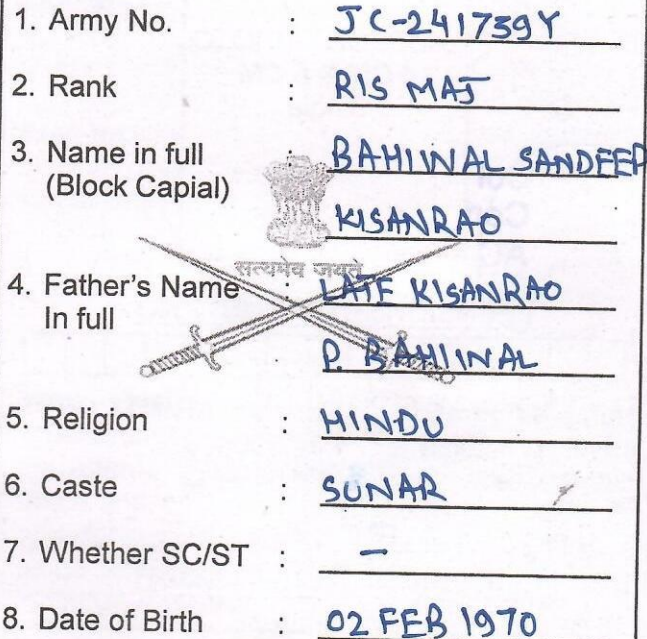 1. Army No. : JC-241739Y
2. Rank : RIS MAJ
3. Name in full : BAHIWAL SANDEEP
(Block Capial) KISANRAO
सत्यमेव जयते
4. Father's Name : LATE KISANRAO
In full P. BAHIWAL
5. Religion : HINDU
6. Caste : SUNAR
7. Whether SC/ST : –
8. Date of Birth : 02 FEB 1970